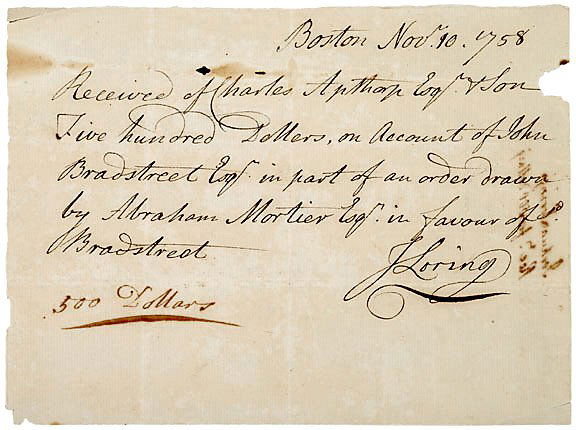 Boston Novr. 10. 1758
Received of Charles Apthorp Esqr. & Son
Five hundred Dollers, on Account of John
Bradstreet Esqr. in part of an order drawn
by Abraham Mortier Esqr. in favour of sd.
Bradstreet
JLoring
500 Dollars